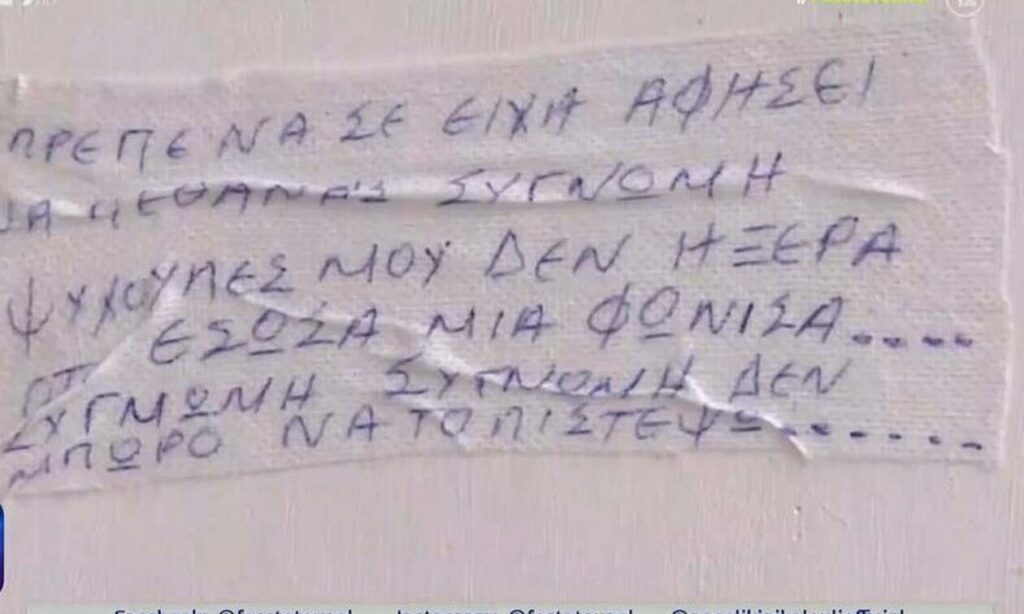 ΠΡΕΠΕ ΝΑ ΣΕ ΕΙΧΑ ΑΦΗΣΕΙ
ΝΑ ΠΕΘΑΝΑΙΣ ΣΥΓΝΩΜΗ
ΨΥΧΟΥΛΕΣ ΜΟΥ ΔΕΝ ΗΞΕΡΑ
ΟΤΙ ΕΣΩΣΑ ΜΙΑ ΦΩΝΙΣΑ.....
ΣΥΓΜΩΜΗ ΣΥΓΝΩΜΗ ΔΕΝ
ΜΠΩΡΟ ΝΑ ΤΟ ΠΙΣΤΕΨΩ.......